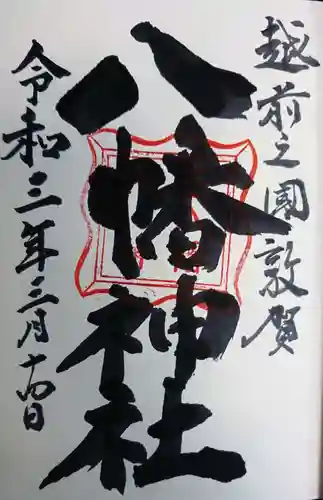 越前之國敦賀
八幡神社
令和三年三月十四日